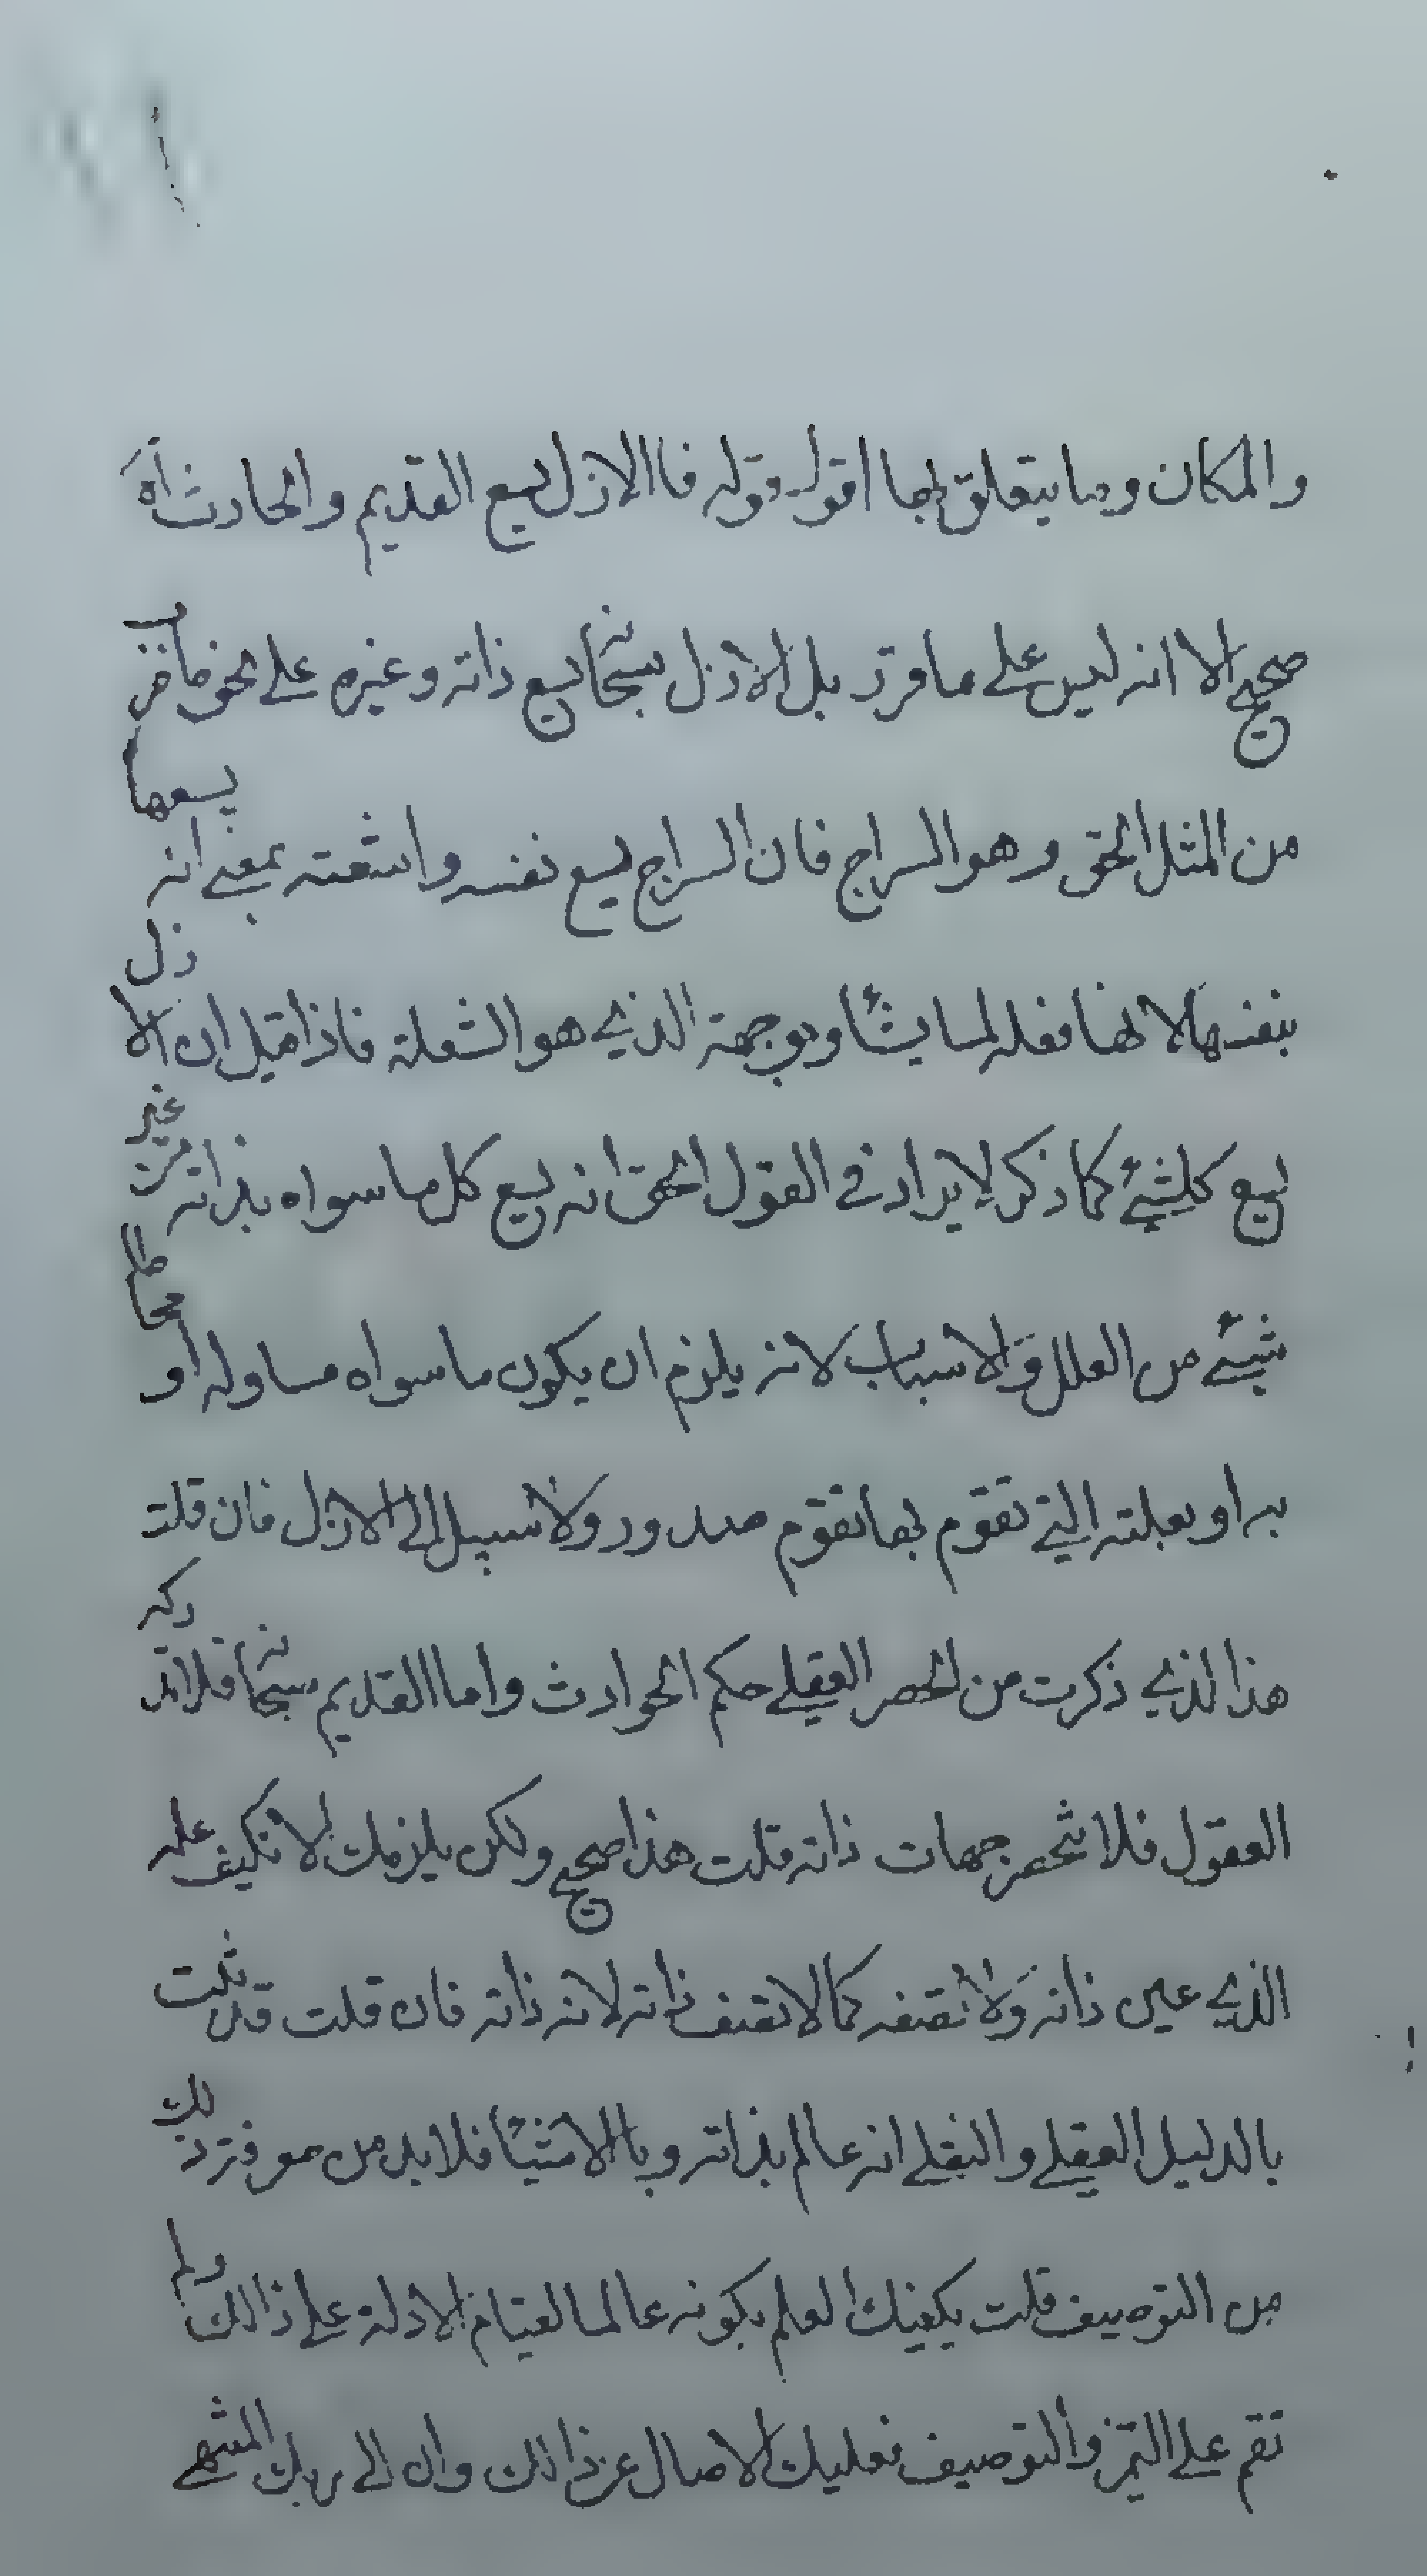 والمكان وما يتعلق بها اقول قوله فاالازل يسع القديم والحادث اه
صحيح الا انه ليس على ما قرر بل الازل سبحانه يسع ذاته وغيره على نحو ما ضرب
من المثل الحق وهو السراج فان السراج يسع نفسه واشعته بمعنى انه يسعها
بنفسها لا نها فعله لما يشاء وبوجهة الذي هو الشعلة فاذا قيل ان الازل
يسع كلشيء كما ذكر لا يراد في القول الحق انه يسع كل ما سواه بذاته من غير
شيء من العلل والاسباب لانه يلزم ان يكون ما سواه مساو له او محاطا
به او بعلته التي تقوم بها تقوم صدور ولا سبيل الى الازل فان قلت
هذا لذي ذكرت من الحصر العقلي حكم الحوادث واما القديم سبحانه فلا تدركه
العقول فلا تنحصر جهات ذاته قلت هذا صحيح ولكن يلزمك لا تكيف علمه
الذي عين ذاته ولا تصفه كما لا تصف ذاته لانه ذاته فان قلت قد ثبت
بالدليل العقلي والنقلي انه عالم بذاته وباالاشياء فلا بد من معرفة ذلك
من التوصيف قلت يكفيك العلم بكونه عالما لقيام الادلة على ذالك ولم
تقم على التميز والتوصيف فعليك الا صال عن ذالك وان الى ربك المنتهى